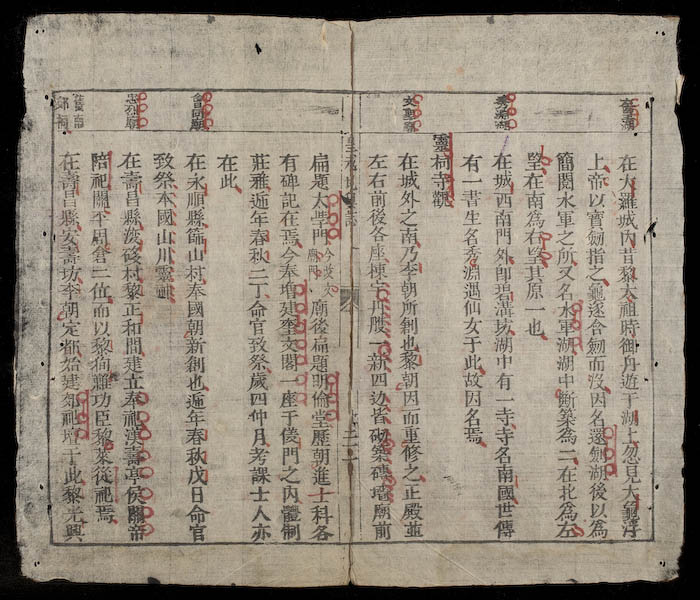 在大羅城內昔黎太祖時御舟遊于湖上忽見大龜浮
上帝以寶劒指之龜遂含劒而沒因名還劒湖後以為
簡閱水軍之所又名水軍湖湖中斷築為二在北為左
望在南為右望其原一也
秀淵湖
在城西南門外卽碧溝坊湖中有一寺寺名南國世傳
有一書生名秀淵遇仙女于此故因名焉
靈祠寺觀
文聖廟
在城外之南乃李朝所創也黎朝因而重修之正殿並
左右前後各座棟宇一新四边皆砌築磚墻廟前
扁題太學門今改文廟門廟後扁題明倫堂歷朝進士科各
有碑記在焉今奉增建奎文閣一座于儀門之內體制
莊雅遞年春秋二丁命官致祭歲四仲月考課士人亦
在此
會同廟
在永順縣山村奉國朝新創也遞年春秋戊日命官
致祭本國山川靈祠
忠烈廟
在壽昌縣村黎正和間建立奉祀漢壽亭侯關帝
陪祀關平周倉二位而以黎功臣黎萊從祀焉
在壽昌縣安壽坊李朝定都始建郊祀壇于此黎光興